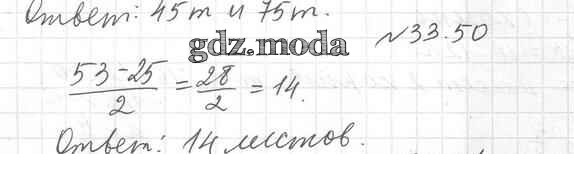 Ответ: 45т и 75т.
gdz.moda
№33.50
53-25/2 = 28/2 = 14.
Ответ: 14 листов.